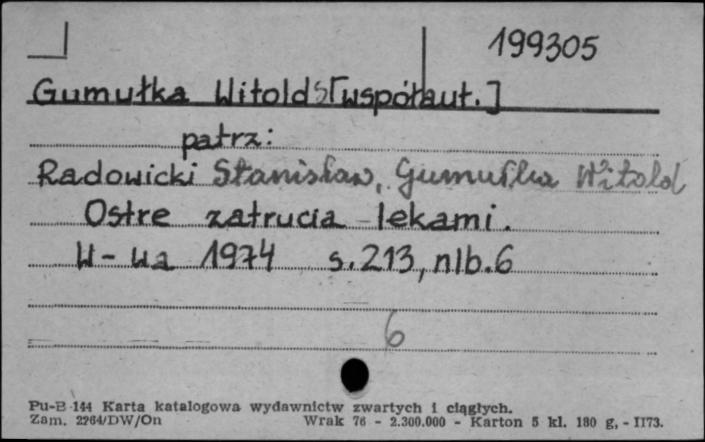 199305
Gumułka Witold S[współaut.]
patrz:
Radowicki Stanisław, Gumułka Witold
Ostre zatrucia lekami.
W-wa 1974 s. 213, nlb. 6
6
Pu-B 144 Karta katalogowa wydawnictw zwartych i ciągłych.
Zam. 2264/DW/On Wrak 76 - 2.300.000 - Karton 5 kl. 180 g, - II73.